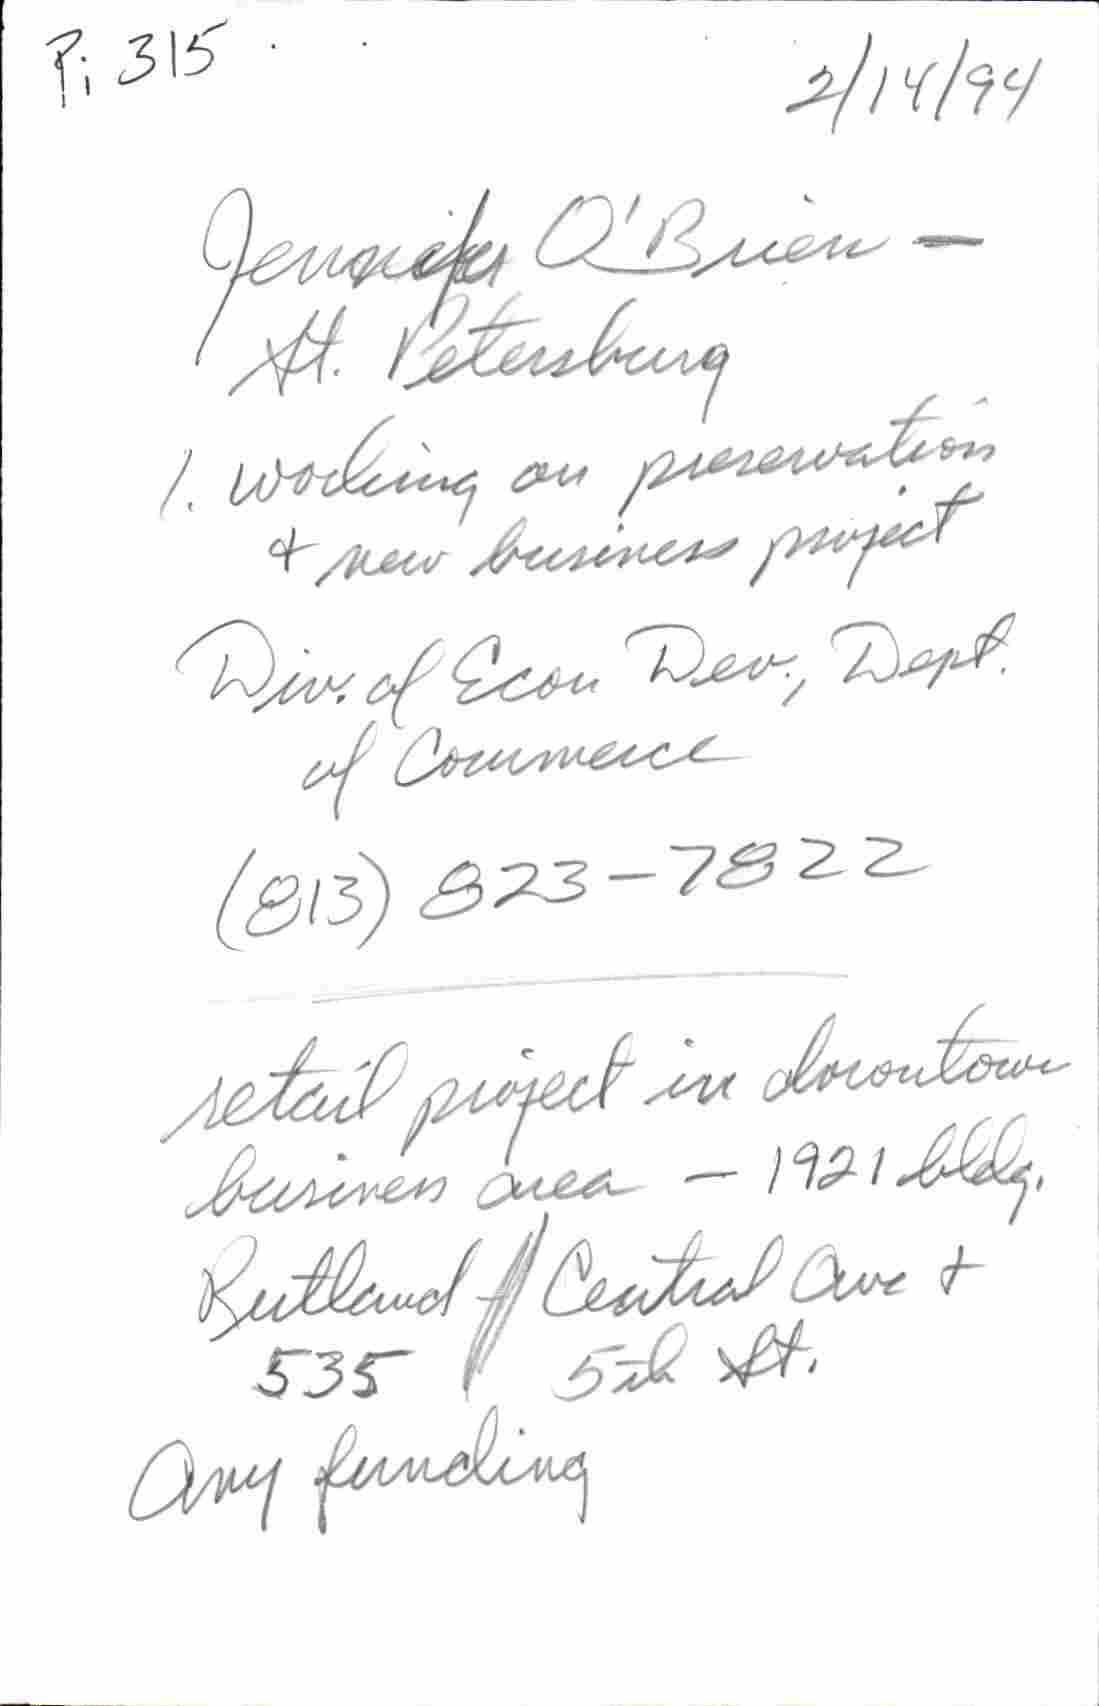 Pi 315
2/14/94
Jennifer O'Brien –
St. Petersburg
1. working on preservation
& new business project
Div. of Econ Dev., Dept.
of Commerce
(813) 823-7822
retail project in downtown
business area – 1921 bldg.
Rutland / Central Ave &
535 5th St.
Any funding